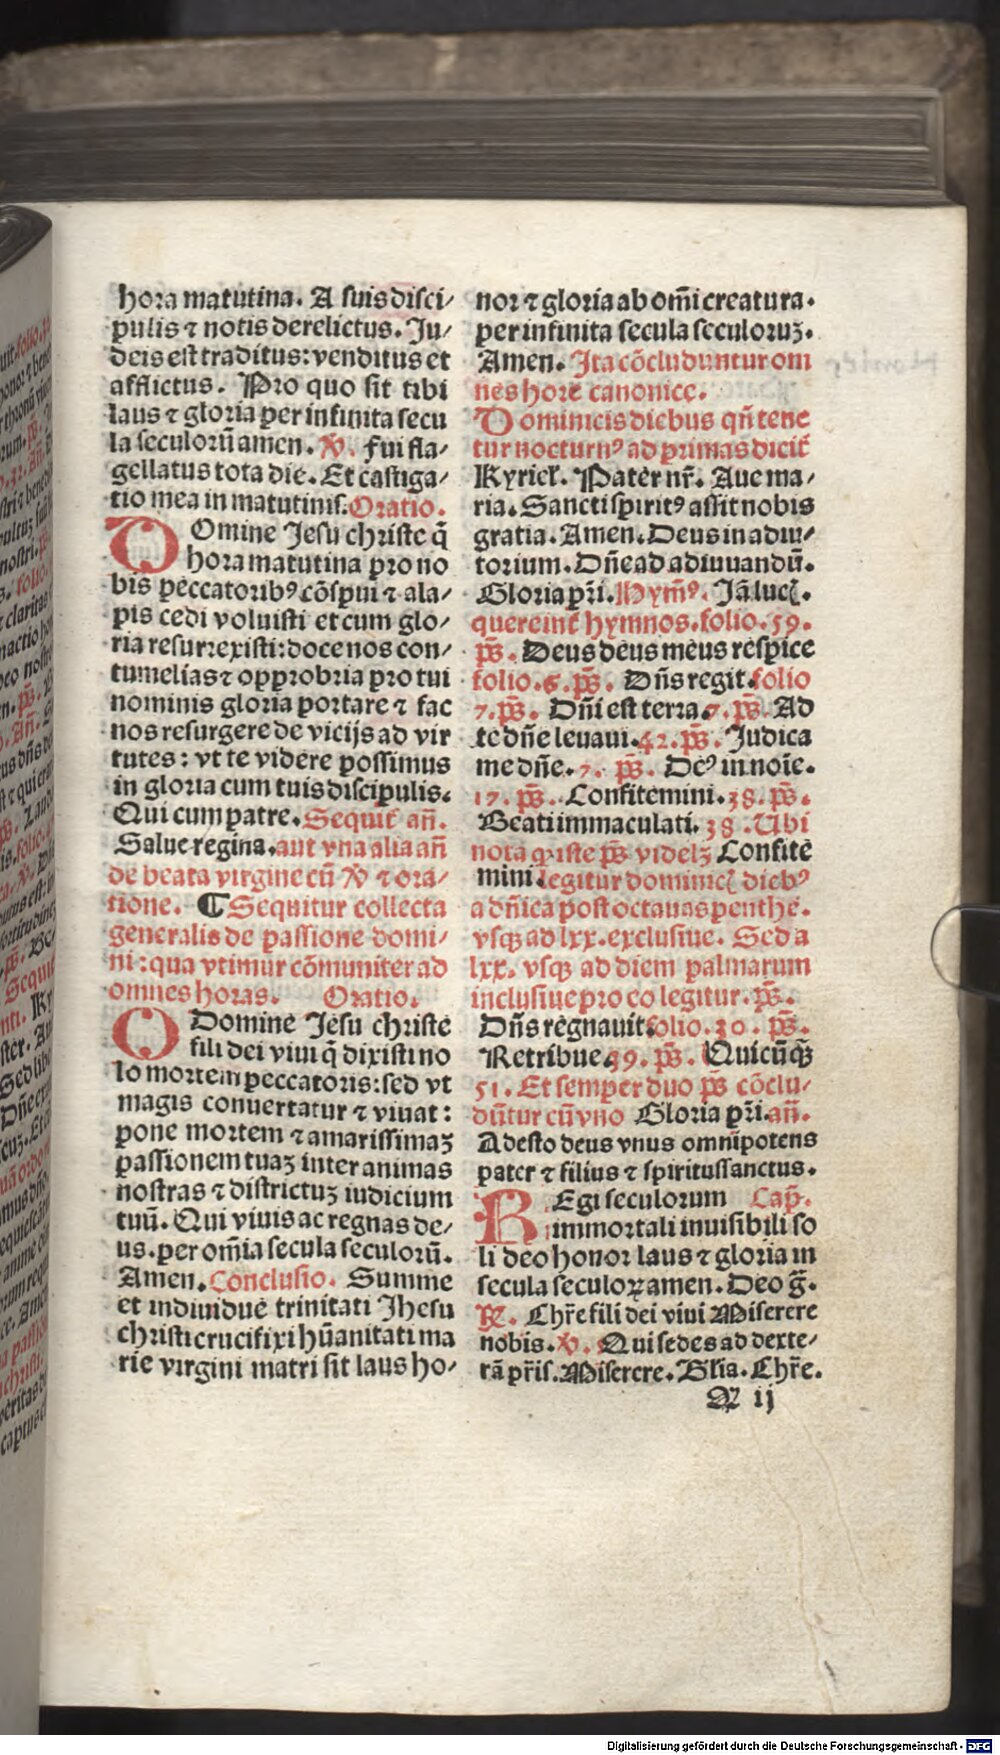 hora matutina. A suis disci/
pulis ⁊ notis derelictus. Ju/
deis est traditus: venditus et
afflictus. Pro quo sit tibi
laus ⁊ gloria per infinita secu
la seculorū amen. ℣. Fui fla/
gellatus tota die. Et castiga/
tio mea in matutinis. Oratio.
DOmine Jesu christe q̄
hora matutina pro no
bis peccatoribꝰ cōspui ⁊ ala/
pis cedi voluisti et cum glo/
ria resurrexisti: doce nos con/
tumelias ⁊ opprobria pro tui
nominis gloria portare ⁊ fac
nos resurgere de vicijs ad vir
tutes: vt te videre possimus
in gloria cum tuis discipulis.
Qui cum patre. Sequit᷑ an̄.
Salue regina. aut vna alia an̄
de beata virgine cū ℣ ⁊ ora/
tione. ¶ Sequitur collecta
generalis de passione domi/
ni: qua vtimur cōmuniter ad
omnes horas. Oratio.
O Domine Jesu christe
fili dei viui q̄ dixisti no
lo mortem peccatoris: sed vt
magis conuertatur ⁊ viuat:
pone mortem ⁊ amarissimaꝫ
passionem tuaꝫ inter animas
nostras ⁊ districtuꝫ iudicium
tuū. Qui viuis ac regnas de/
us. per om̄ia secula seculorū.
Amen. Conclusio. Summe
et indiuidue trinitati Jhesu
christi crucifixi hūanitati ma
rie virgini matri sit laus ho/
nor ⁊ gloria ab om̄i creatura.
per infinita secula seculoruꝫ.
Amen. Ita cōcluduntur om
nes hore canonice.
Dominicis diebus qn̄ tene
tur nocturnꝰ ad primas dicit᷑
Kyriel. Pater nr̄. Aue ma/
ria. Sancti spiritꝰ assit nobis
gratia. Amen. Deus in adiu/
torium. Dn̄e ad adiuuandū.
Gloria pr̄i. Hymꝰ. Jā lucꝭ.
quere int᷑ hymnos. folio. 59.
p̄s. Deus deus meus respice
folio. 6. p̄s. Dn̄s regit. folio
7. p̄s. Dn̄i est terra. 7. p̄s. Ad
te dn̄e leuaui. 42. p̄s. Judica
me dn̄e. 7. p̄s. Deꝰ in noīe.
17. p̄s. Confitemini. 38. p̄s.
Beati immaculati. 38. Ubi
nota ꝙ iste p̄s videlꝫ Confite
mini legitur dominicꝭ diebꝰ
a dn̄ica post octauas penthe.
vsqꝫ ad lxx. exclusiue. Sed a
lxx. vsqꝫ ad diem palmarum
inclusiue pro eo legitur. p̄s.
Dn̄s regnauit. folio. 30. p̄s.
Retribue. 39. p̄s. Quicūqꝫ
51. Et semper duo p̄s cōclu/
dūtur cū vno Gloria pr̄i. an̄.
Adesto deus vnus omnīpotens
pater ⁊ filius ⁊ spiritussanctus.
REgi seculorum Cap̄.
immortali inuisibili so
li deo honor laus ⁊ gloria in
secula seculoꝝ amen. Deo ḡ.
℟. Chr̄e fili dei viui Miserere
nobis. ℣. Qui sedes ad dexte/
rā pr̄is. Miserere. Glīa. Chr̄e.
A ij
Digitalisierung gefördert durch die Deutsche Forschungsgemeinschaft - DFG